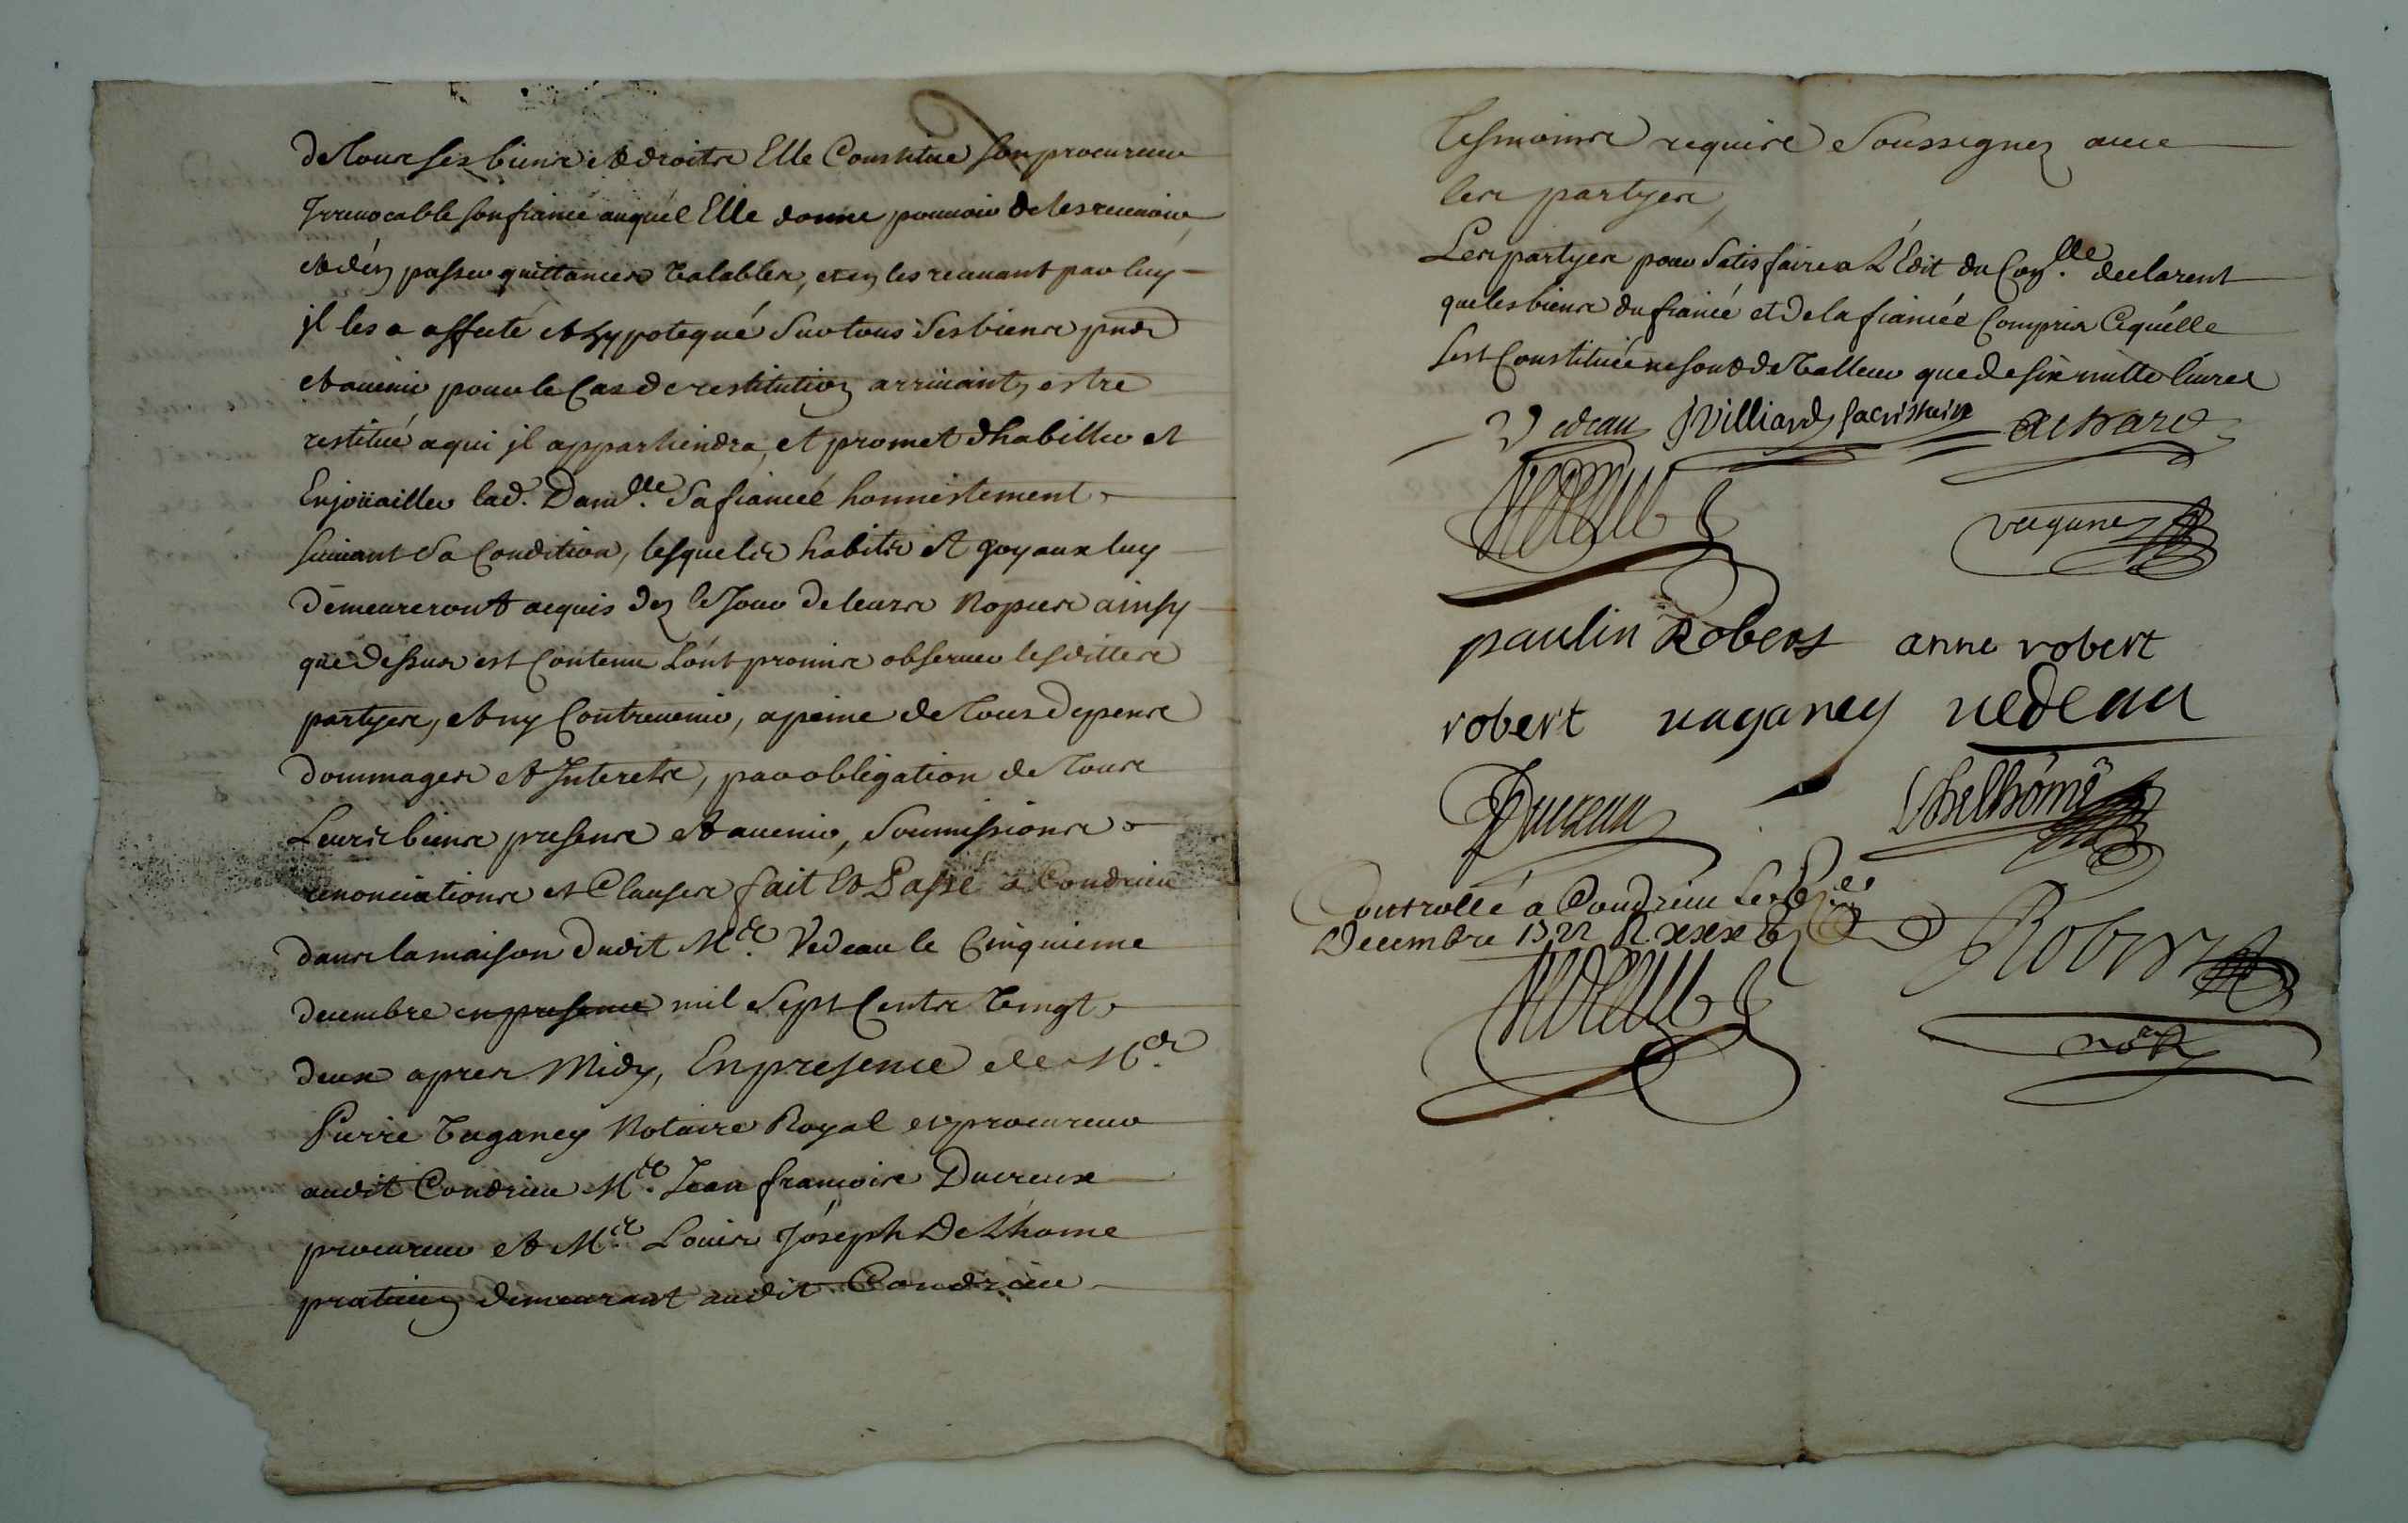 de tous ses biens et droits Elle Constitue son procureur
Irrevocable son fiancé auquél Elle donne pouvoir de les recevoir
et d'én passer quittances valables, et en les recevant par luy
jl les a affecté et hypotequé sur tous ses biens pnts
et avenir pour le Cas de restitution arrivant, estre
restitué a qui jl appartiendra, et promet d'habiller et
Enjoüailler lad. Dam.lle sa fiancéé honnestement
suivant sa Condition, lesquels habits et joyaux luy
démeureront acquis dez le Jour de leurs Nopces ainsy
que dessus est Contenu L'ont promis observer lesdittes
partyes, et ny Contrevenir, a peine de tous depens
dommages et Interets, par obligation de tous
Leurs biens presens et avenir, Soumissions
renonciations et Clauses fait et Passé a Condrieu
dans la maison dudit M.e Vedeau le Cinquieme
decembre en presence mil sept Cents vingt
deux apres Midy, En presence de M.e
Pierre Vaganey Notaire Royal et procureur
audit Condrieu M.e Jean françois Ducreux
procureur et M.e Louis Jóseph Delhome
praticien demeurant audit Condrieu
tesmoins requis Soussignez avec
les partyes
Les partyes pour Satisfaire a L'Edit du Con.lle declarent
que les biens du fiancé et de la fiancéé Compris Cequélle
sest Constituéé ne sont de Valleur que de six mille livres
Vedeau JVilliard sacristain Achard
Vedeau vagane
paulin Robert anne robert
robert vaganey vedeau
Ducreux Delhome
Controllé a Condrieu Le
Decembre 1722 R xxx
Vedeau Robert
nore